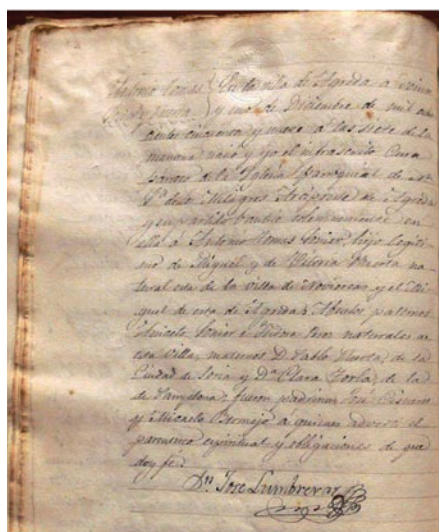 Antonio Tomas En la villa de Agreda a treinta
y uno de Diciembre de mil ocho
cientos cincuenta y nueve á las siete de la
mañana nació y yo el infrascrito Cura
parroco de la Iglesia parroquial de
de los Milagros Arcipreste de Agreda
y su partido bautice solemnemente en
ella á Antonio Tomas hijo legiti
mo de Miguel y de Victoria Huerta na
tural esta de la villa de Noviercas y el Mi
guel de esta de Agreda Abuelos paternos
naturales de
esta villa, maternos D. Pablo Huerta, de la
Ciudad de Soria y Dª Clara de la
de Pamplona: fueron padrinos José
y Micaela Bermejo á quienes advertí el
parentesco espiritual y obligaciones de que
doy fé.
Dn Jose Lumbreras